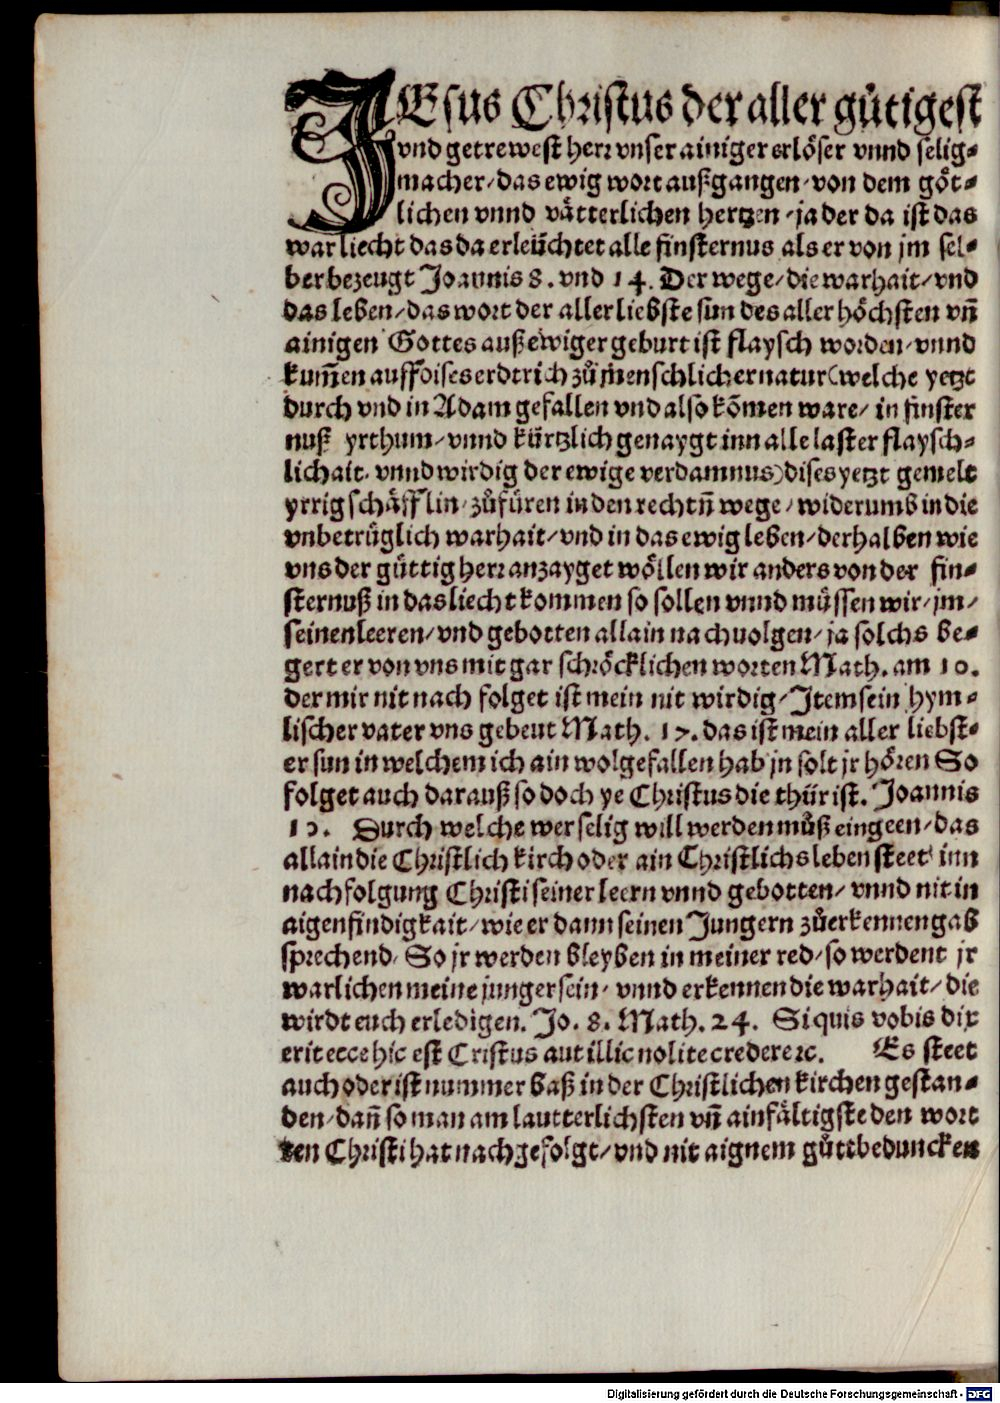 JEsus Christus der aller gütigest
vnd getrewest herr vnser ainiger erlöser vnnd selig-
macher/das ewig wort außgangen/von dem göt-
lichen vnnd vätterlichen hertzen/ja der da ist das
war liecht das da erleüchtet alle finsternus als er von jm sel-
ber bezeugt Joannis 8. vnd 14. Der wege/die warhait/vnd
das leben/das wort der aller liebste sun des aller höchsten vñ
ainigen Gottes auß ewiger geburt ist flaysch worden/vnnd
kum̃en auff dises erdtrich zů menschlicher natur (welche yetzt
durch vnd in Adam gefallen vnd also kõmen ware/ in finster
nuß yrthum/vnnd kürtzlich genaygt inn alle laster flaysch-
lichait. vnnd wirdig der ewige verdamnus) dises yetzt gemelt
yrrig schäfflin/zůfüren in den rechtñ wege/widerumb in die
vnbetrüglich warhait/vnd in das ewig leben/derhalben wie
vns der güttig herr anzayget wöllen wir anders von der fin-
sternuß in das liecht kommen so sollen vnnd müssen wir/jm/
seinen leeren/vnd gebotten allain nachuolgen/ja solchs be-
gert er von vns mit gar schröcklichen worten Math. am 10.
der mir nit nach folget ist mein nit wirdig/Jtem sein hym-
lischer vater vns gebeut Math. 17. das ist mein aller liebst-
er sun in welchem ich ain wolgefallen hab jn solt jr hören So
folget auch darauß so doch ye Christus die thür ist. Joannis
10. Durch welche wer selig will werden můß eingeen/das
allain die Christlich kirch oder ain Christlichs leben steet inn
nachfolgung Christi seiner leern vnnd gebotten/ vnnd nit in
aigenfindigkait/wie er dann seinen Jungern zůerkennen gab
sprechend/ So jr werden bleyben in meiner red/so werdent jr
warlichen meine junger sein/ vnnd erkennen die warhait/die
wirdt euch erledigen. Jo. 8. Math. 24. Si quis vobis dix
erit ecce hic est Cristus aut illic nolite credere ꝛc. Es steet
auch oder ist nummer baß in der Christlichen kirchen gestan-
den/dañ so man am lautterlichsten vñ ainfältigste den wort
ten Christi hat nachgefolgt/vnd nit aignem gůttbeduncken
Digitalisierung gefördert durch die Deutsche Forschungsgemeinschaft - DFG